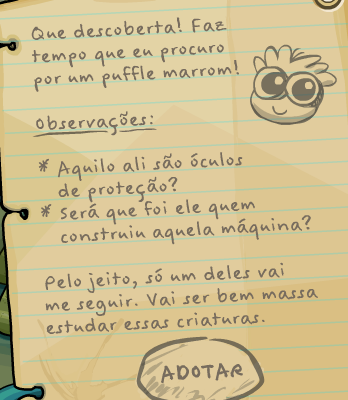 Que descoberta! Faz
tempo que eu procuro
por um puffle marrom!
Observações:
* Aquilo ali são óculos
de proteção?
* Será que foi ele quem
construiu aquela máquina?
Pelo jeito, só um deles vai
me seguir. Vai ser bem massa
estudar essas criaturas.
ADOTAR